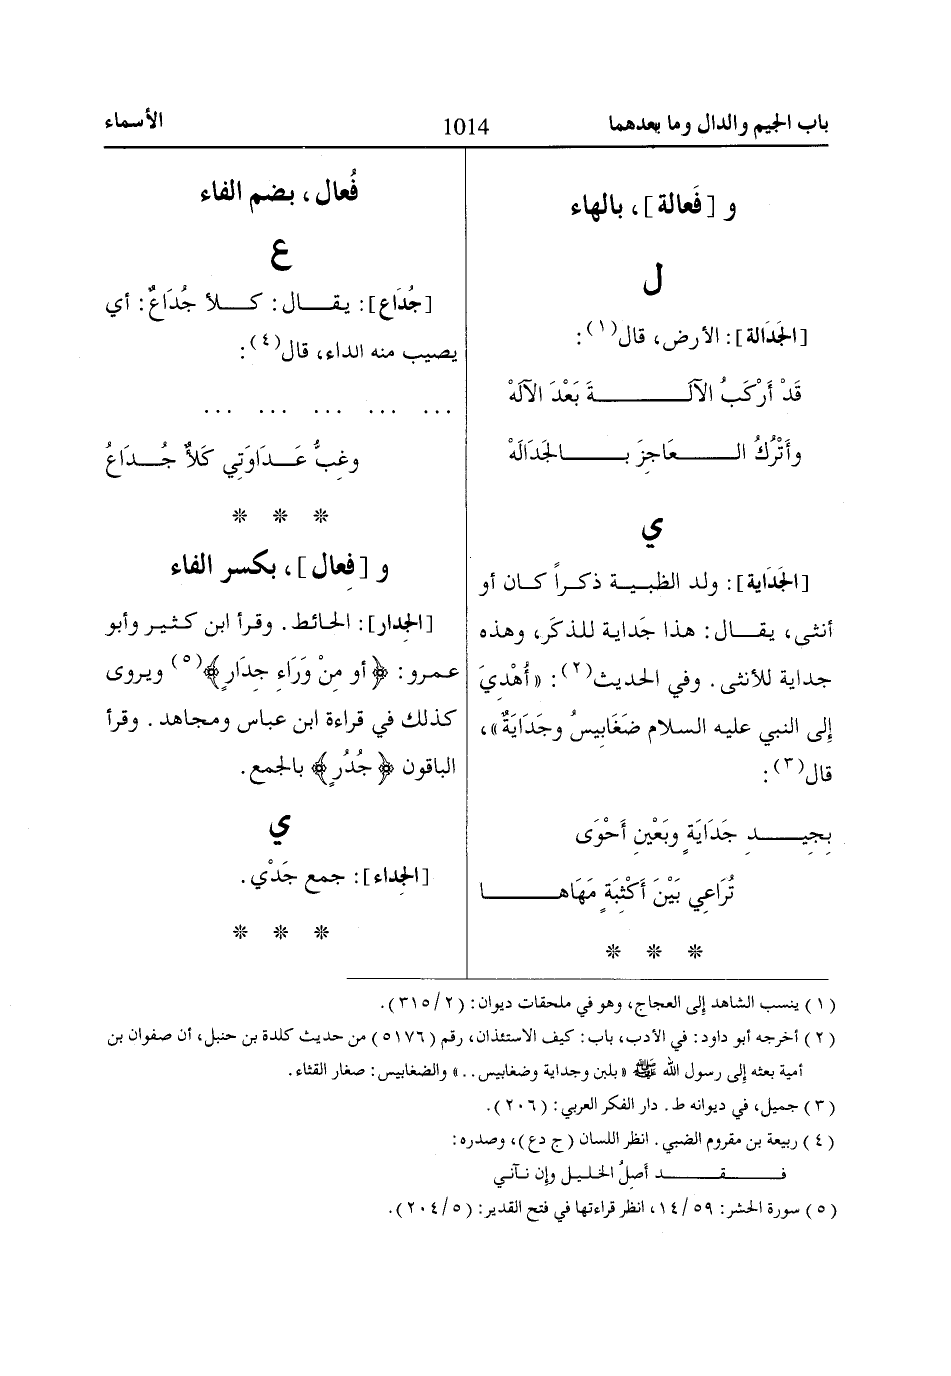 باب الجيم والدال وما بعدهما 1014 الأسماء
و [فَعالة]، بالهاء
ل
[الجَدَالة]: الأرض، قال(١):
قَدْ أَرْكَبُ الآلَـــةَ بَعْدَ الآلَهْ
وأَتْرُكُ الـــعَاجِزَ بـــالجَدَالَهْ
ي
[الجَدَاية]: ولد الظبيـة ذكـراً كـان أو
أنثى، يقـال: هذا جَداية للذكَر، وهذه
جداية للأنثى. وفي الحديث(٢): «أُهْدِيَ
إِلى النبي عليه السلام ضَغَابِيسُ وجَدَايَةٌ»،
قال(٣):
بِجِيـــدِ جَدَايَةٍ وبَعْينِ أَحْوَى
تُرَاعِي بَيْنَ أَكْثِبَةٍ مَهَاهـــا
* * *
فُعال، بضم الفاء
ع
[جُدَاع]: يقـال: كـلأ جُدَاعٌ: أي
يصيب منه الداء، قال(٤):
... ... ... ... ...
وغِبُّ عَـدَاوَتِي كَلأٌ جُـدَاعُ
* * *
و [فِعال]، بكسر الفاء
[الجِدار]: الحائط. وقرأ ابن كثير وأبو
عمرو: ﴿أو مِنْ وَرَاءِ جِدَارٍ﴾(٥) ويروى
كذلك في قراءة ابن عباس ومجاهد. وقرأ
الباقون ﴿جُدُرٍ﴾ بالجمع.
ي
[الجِداء]: جمع جَدْي.
* * *
(١) ينسب الشاهد إلى العجاج، وهو في ملحقات ديوان: (٢/٣١٥).
(٢) أخرجه أبو داود: في الأدب، باب: كيف الاستئذان، رقم (٥١٧٦) من حديث كلدة بن حنبل، أن صفوان بن
أمية بعثه إلى رسول الله ﷺ «بلبن وجداية وضغابيس..» والضغابيس: صغار القثاء.
(٣) جميل، في ديوانه ط. دار الفكر العربي: (٢٠٦).
(٤) ربيعة بن مقروم الضبي. انظر اللسان (ج دع)، وصدره:
فـــقـــد أصلُ الخليل وإن نآني
(٥) سورة الحشر: ٥٩/١٤، انظر قراءتها في فتح القدير: (٥/٢٠٤).